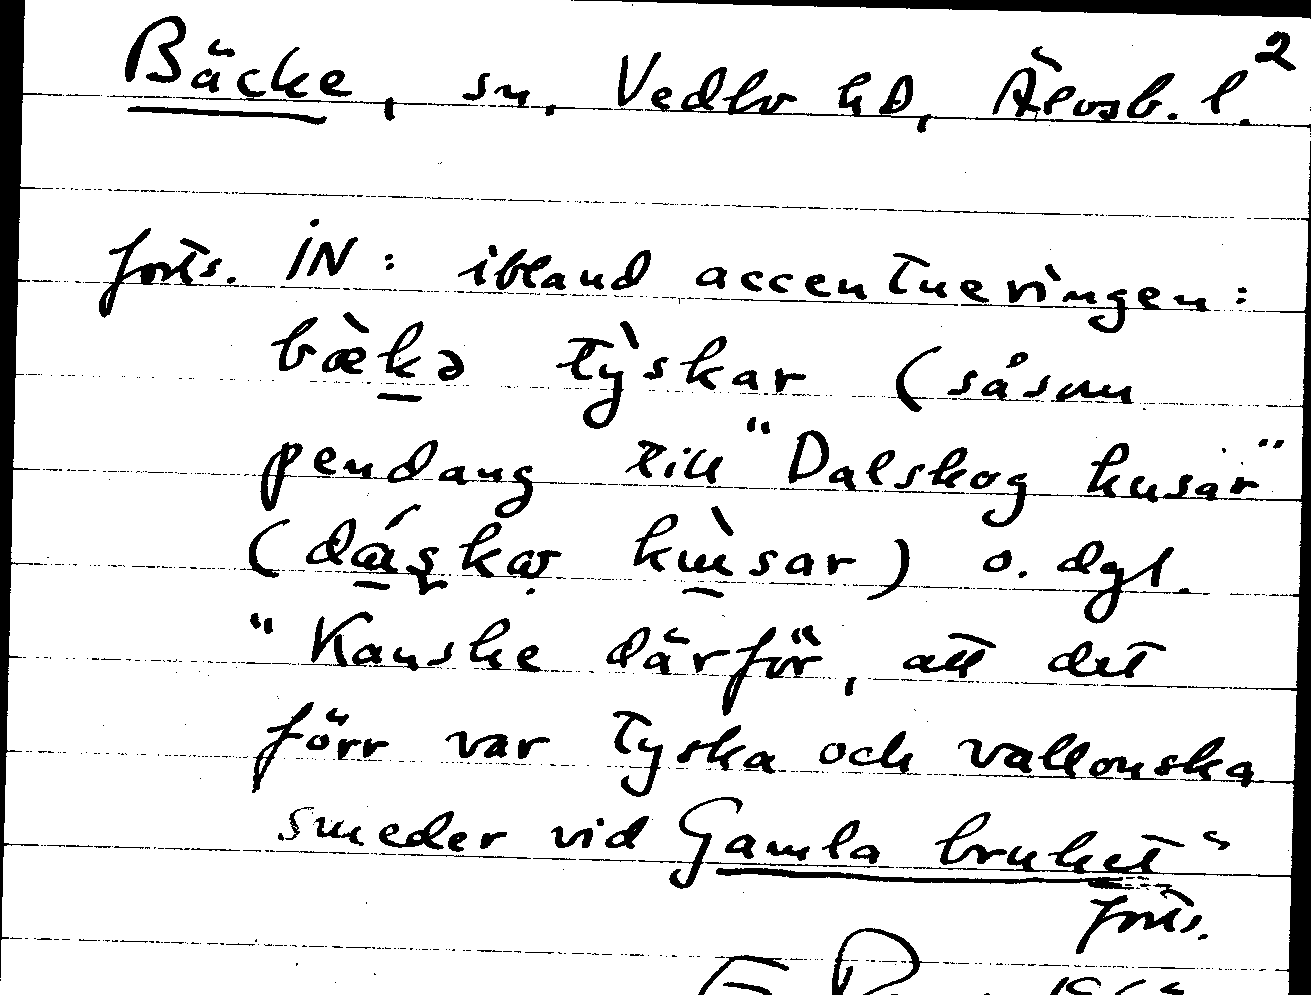 Bäcke, sn. Vedbo hd, Älvsb. l. 2
forts. IN: ibland accentueringen:
bæ̀kə tỳskar (såsom
pendang till "Dalskog husar"
(dáskǝ hùsar) o. dgl.
"Kanske därför, att det
förr var tyska och vallonska
smeder vid Gamla bruket"
forts.